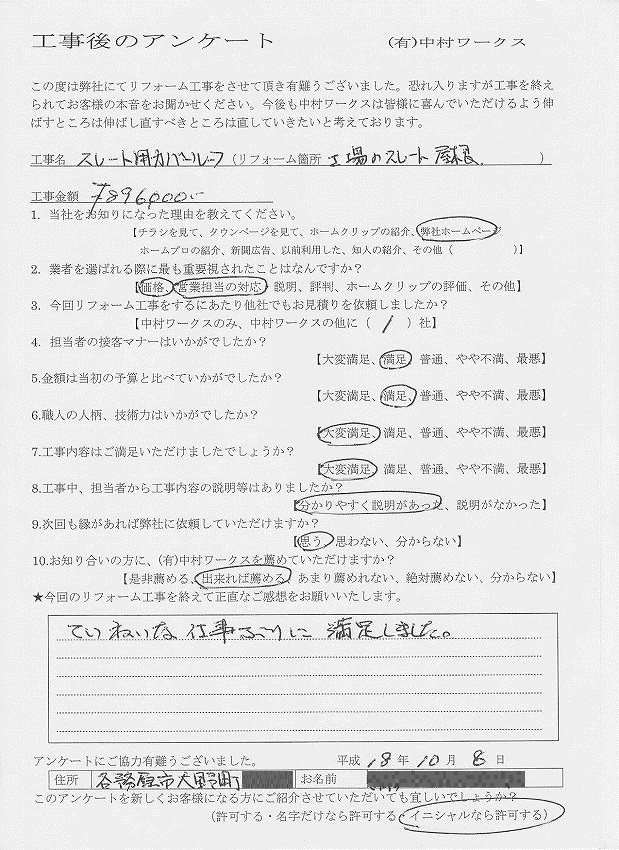 工事後のアンケート (有)中村ワークス
この度は弊社にてリフォーム工事をさせて頂き有難うございました。恐れ入りますが工事を終え
られてお客様の本音をお聞かせください。今後も中村ワークスは皆様に喜んでいただけるよう伸
ばすところは伸ばし直すべきところは直していきたいと考えております。
工事名 スレート用カバールーフ (リフォーム箇所 工場のスレート屋根 )
工事金額 ¥896,000-
1. 当社をお知りになった理由を教えてください。
【チラシを見て、タウンページを見て、ホームクリップの紹介、弊社ホームページ
ホームプロの紹介、新聞広告、以前利用した、知人の紹介、その他( )】
2. 業者を選ばれる際に最も重要視されたことはなんですか?
【価格、営業担当の対応、説明、評判、ホームクリップの評価、その他】
3. 今回リフォーム工事をするにあたり他社でもお見積りを依頼しましたか?
【中村ワークスのみ、中村ワークスの他に( 1 )社】
4. 担当者の接客マナーはいかがでしたか?
【大変満足、満足、普通、やや不満、最悪】
5.金額は当初の予算と比べていかがでしたか?
【大変満足、満足、普通、やや不満、最悪】
6.職人の人柄、技術力はいかがでしたか?
【大変満足、満足、普通、やや不満、最悪】
7.工事内容はご満足いただけましたでしょうか?
【大変満足、満足、普通、やや不満、最悪】
8.工事中、担当者から工事内容の説明等はありましたか?
【分かりやすく説明があった、説明がなかった】
9.次回も縁があれば弊社に依頼していただけますか?
【思う、思わない、分からない】
10.お知り合いの方に、(有)中村ワークスを薦めていただけますか?
【是非薦める、出来れば薦める、あまり薦めれない、絶対薦めない、分からない】
★今回のリフォーム工事を終えて正直なご感想をお願いいたします。
ていねいな仕事ぶりに満足しました。
アンケートにご協力有難うございました。 平成 18 年 10 月 8 日
住所 各務原市大野町 お名前
このアンケートを新しくお客様になる方にご紹介させていただいても宜しいでしょうか?
(許可する・名字だけなら許可する・イニシャルなら許可する)